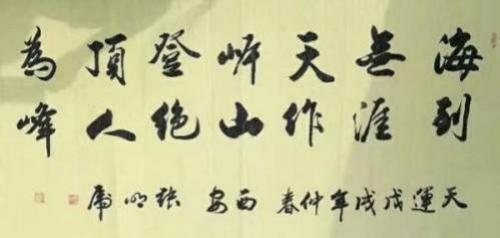 海到
無涯
天作
岸山
登絕
頂人
為峰
天運戊戌年仲春 西安 張明虎